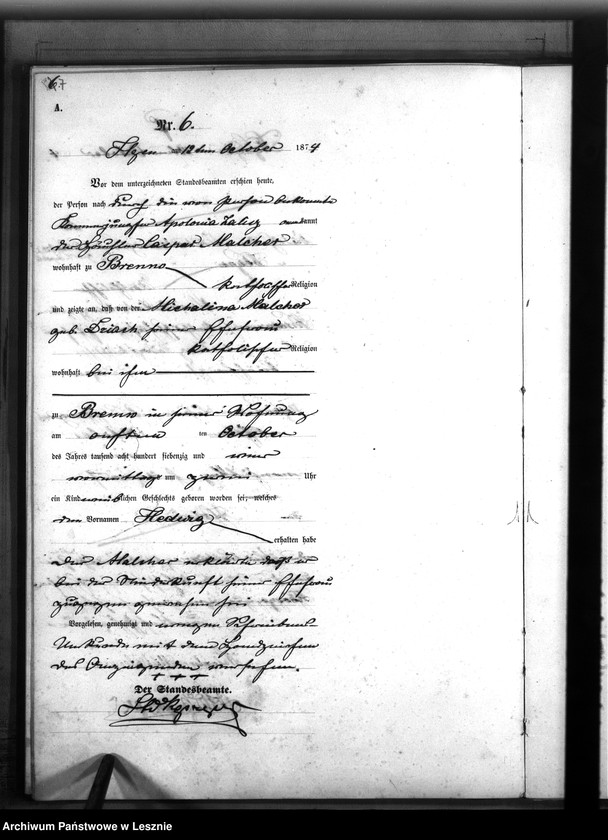 A.
Nr. 6.
am 12 ten October 1874
Vor dem unterzeichneten Standesbeamten erschien heute,
der Person nach durch die von Person bekannte
Apolonia erkannt
der Häusler Caspar Malcher
wohnhaft zu Brenno
katholischer Religion
und zeigte an, daß von der Michalina Malcher
geb. seiner Ehefrau
katholischer Religion
wohnhaft bei ihm
zu Brenno in seiner Wohnung
am ten October
des Jahres tausend acht hundert siebenzig und vier
vormittags um zwei Uhr
ein Kind weiblichen Geschlechts geboren worden sei, welches
den Vornamen Hedwig
erhalten habe
Der Malcher erklärte daß er
bei der Niederkunft seiner Ehefrau
zugegen gewesen sei
Vorgelesen, genehmigt und wegen Schreibens-
Unkunde mit dem Handzeichen
des Anzeigenden versehen.
+ + +
Der Standesbeamte.
Archiwum Państwowe w Lesznie